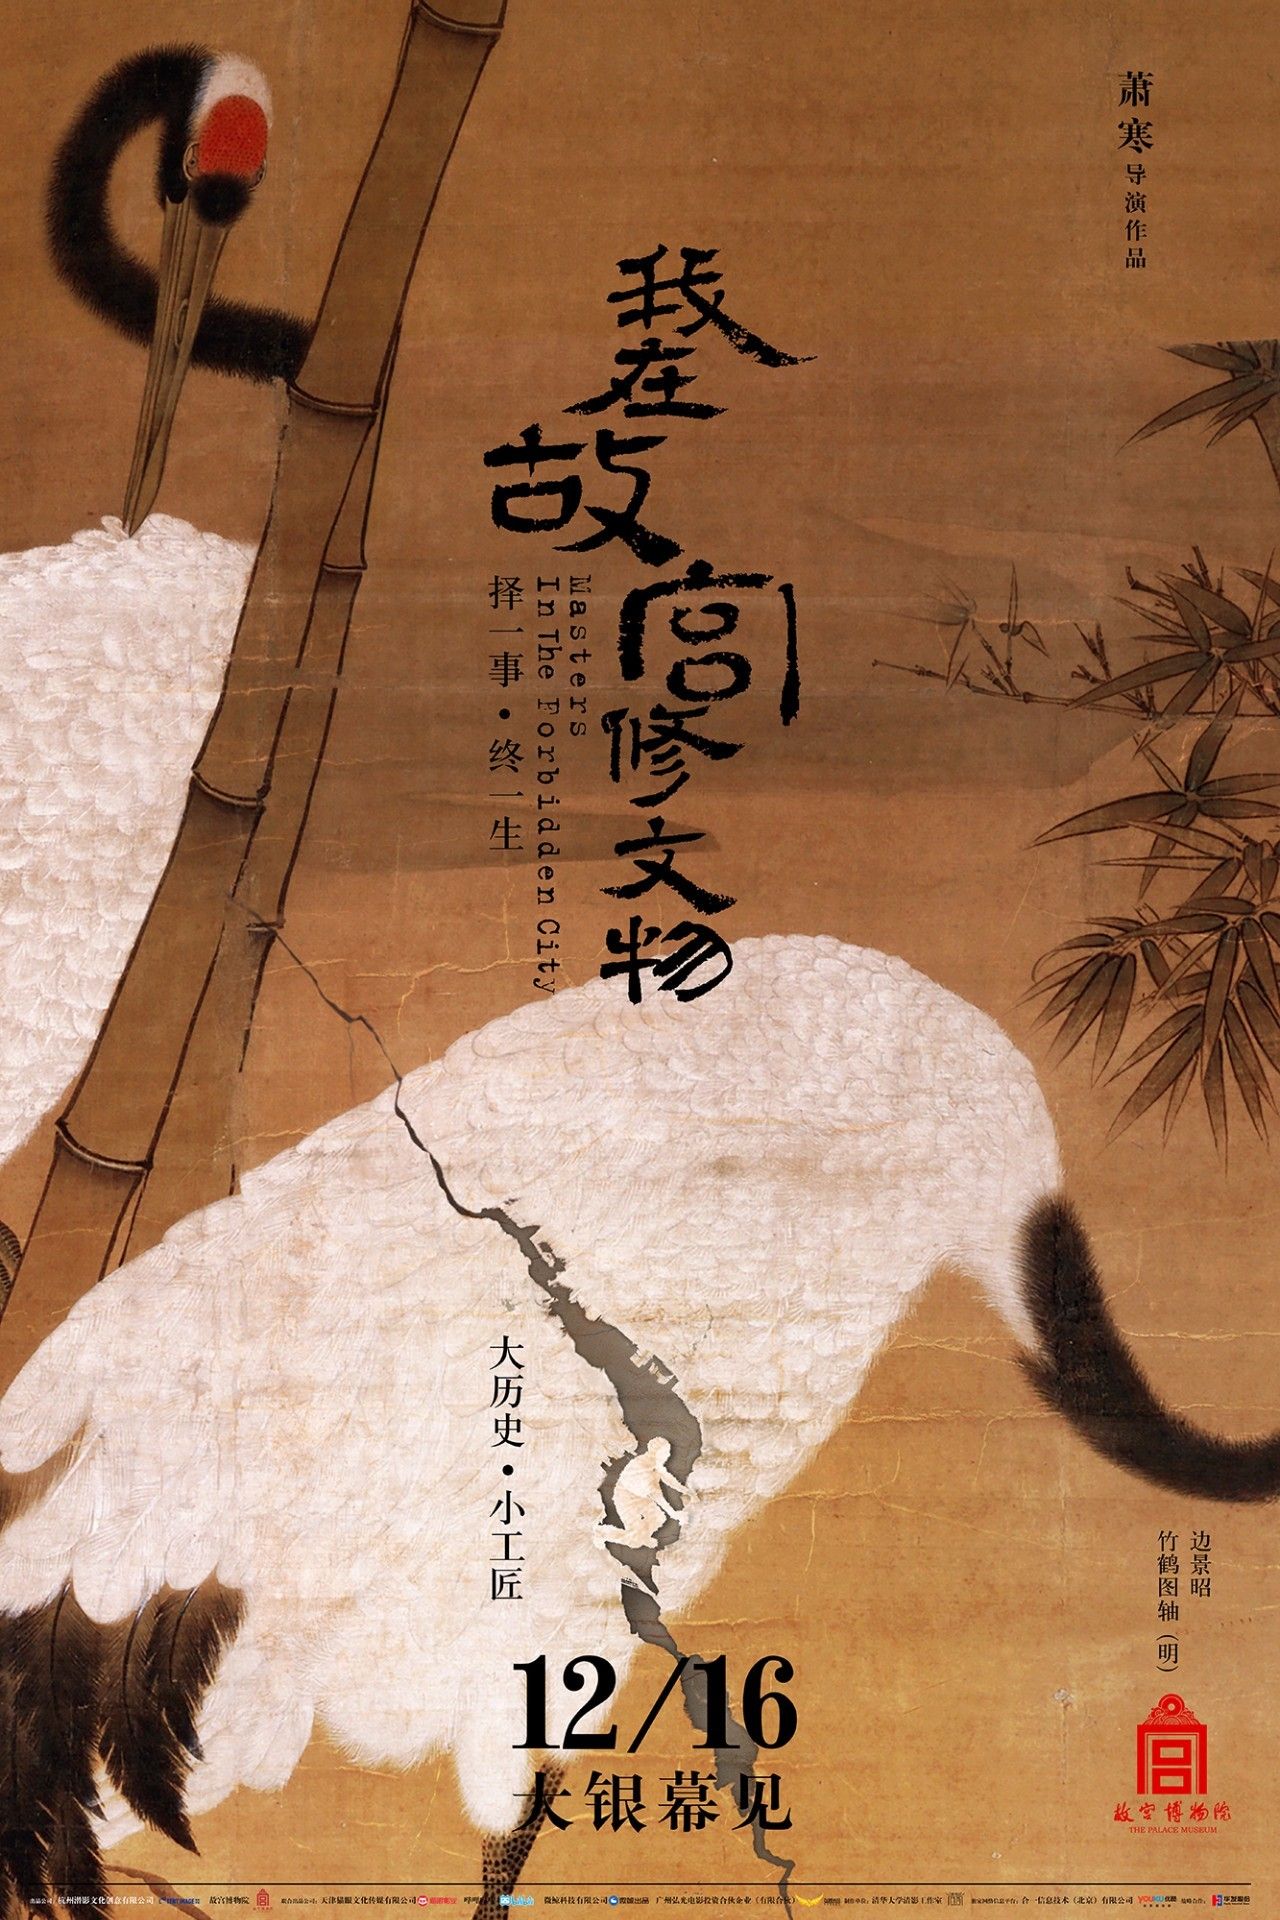 萧寒导演作品
我在故宫修文物
Masters
In The Forbidden City
择一事·终一生
大历史·小工匠
12/16
大银幕见
边景昭
竹鹤图轴(明)
故宫博物院
THE PALACE MUSEUM
出品公司：杭州潜影文化创意有限公司 故宫博物院 联合出品公司：天津猫眼文化传媒有限公司 微鲸科技有限公司 微鲸出品 广州弘光电影投资合伙企业（有限合伙） 制作单位：清华大学清影工作室 独家网络信息平台：合一信息技术（北京）有限公司 YOUKU优酷 战略合作： 华发股份